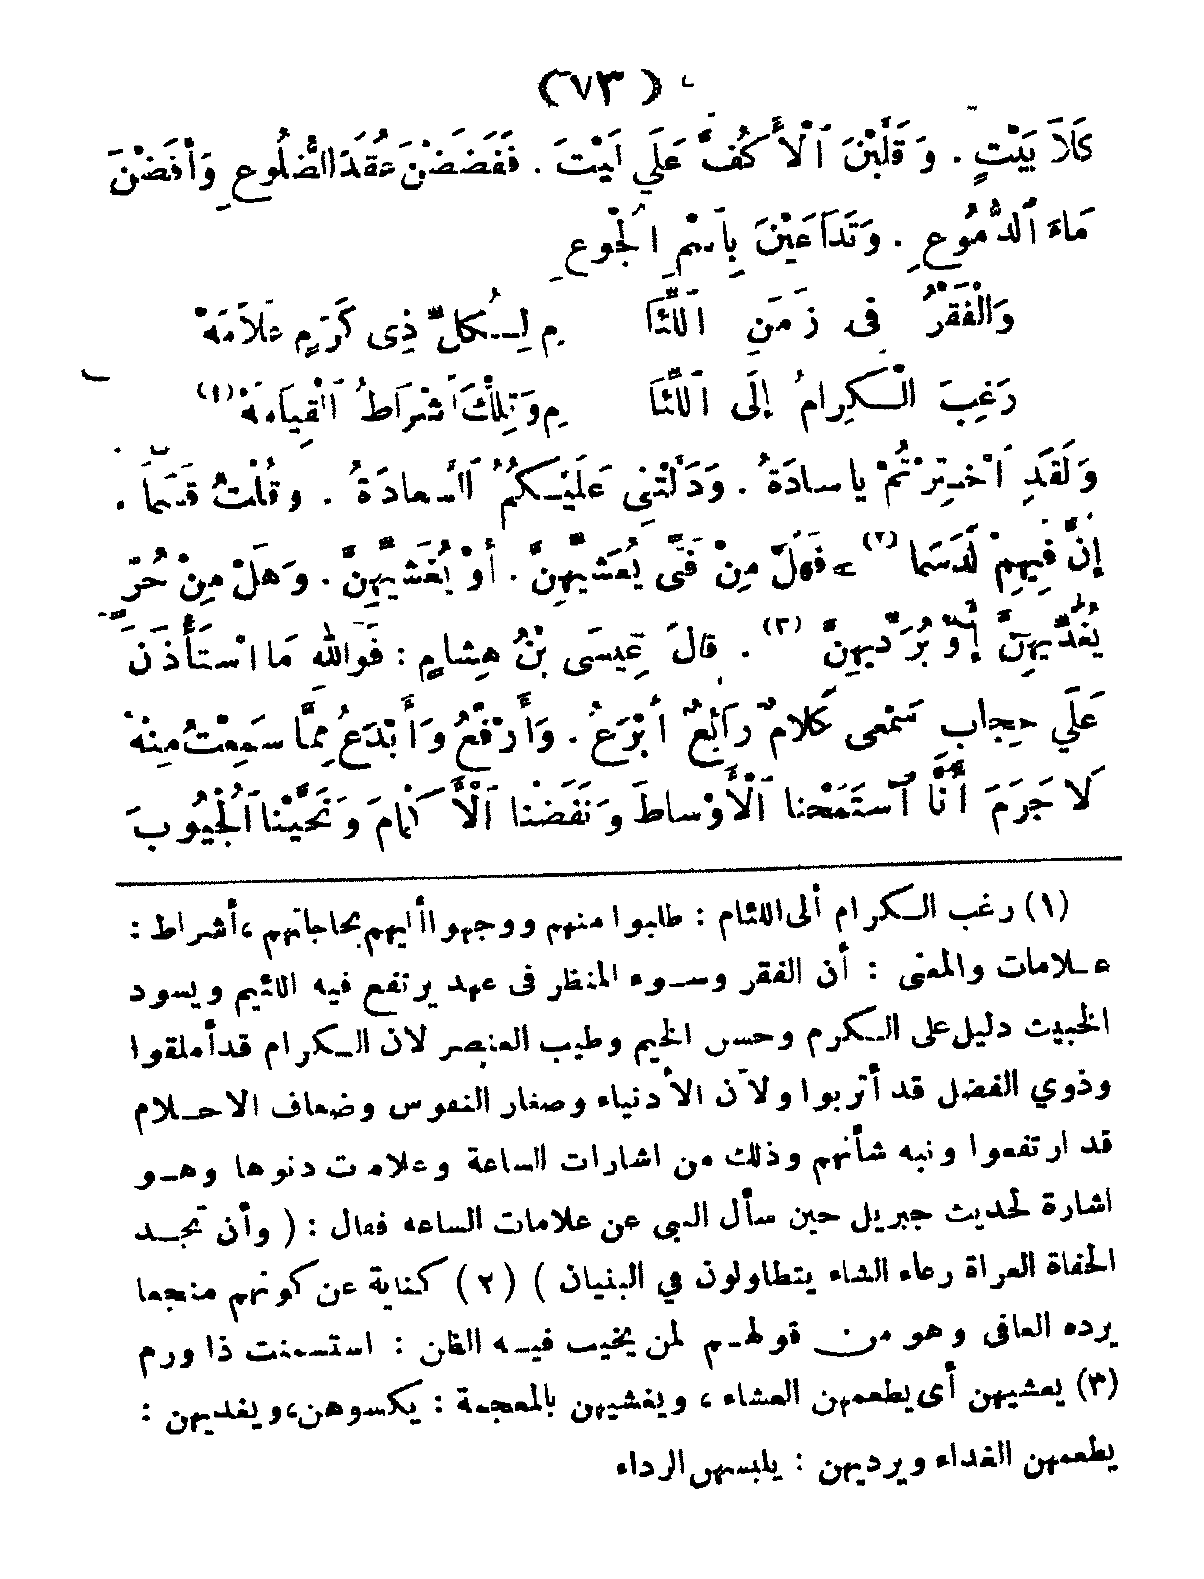 (٧٣)
كَلَا بَيْتٍ . وَقَلَبْنَ ٱلْأَكُفَّ عَلَى لَيْتَ . فَفَضَضْنَ عُقَدَ الضُّلُوعِ وَأَفَضْنَ
مَاءَ ٱلدُّمُوعِ . وَتَدَاعَيْنَ بِاسْمِ الْجُوعِ
وَالْفَقْرُ فِى زَمَنِ ٱللِّئَا مِ لِكُلِّ ذِى كَرَمٍ عَلَامَهْ
رَغِبَ الْكِرامُ إِلَى ٱللِّئَا مِ وَتِلْكَ أَشْرَاطُ ٱلْقِيَامَهْ (١)
وَلَقَدِ ٱخْتِرْتُمْ ياسادَةُ . وَدَلَّتْنِى عَلَيْكُمُ ٱلسَّعادَةُ . وقُلْتُ قَسَماً .
إِنَّ فِيهِمْ لَدَسَما (٢) فَهَلْ مِنْ فَتًى يُعَشِّيهِنَّ . أَوْ يُغَشِّيهِنَّ . وَهَلْ مِنْ حُرٍّ
يُغَدِّيهِنَّ أَوْ يُرَدِّيهِنَّ (٣) . قالَ عِيسَى بْنُ هِشامٍ : فَوَاللهِ مَا اسْتَأْذَنَ
عَلَى حِجابِ سَمْعِى كَلامٌ رَائِعٌ أَبْرَعُ . وَأَرْفَعُ وَأَبْدَعُ مِمَّا سَمِعْتُ مِنْهُ
لَا جَرَمَ أَنَّا ٱسْتَمَحْنا ٱلْأَوْساطَ وَنَفَضْنا ٱلْأَكْمَامَ وَنَحَّيْنا ٱلْجُيُوبَ
(١) رغب الكرام ألى اللئام : طلبوا منهم ووجهوا أليهم بحاجاتهم ، أشراط :
علامات والمعنى : أن الفقر وسوء المنظر فى عهد يرتفع فيه اللئيم ويسود
الخبيث دليل على الكرم وحسن الخيم وطيب العنصر لان الكرام قد أملقوا
وذوي الفضل قد أتربوا ولأن الأدنياء وصغار النفوس وضعاف الاحلام
قد ارتفعوا ونبه شأنهم وذلك من اشارات الساعة وعلامت دنوها وهو
اشارة لحديث جبريل حين سأل النبى عن علامات الساعه فقال : ( وأن تجد
الحفاة العراة رعاء الشاء يتطاولون في البنيان ) (٢) كناية عن كونهم منجعا
يرده العافى وهو من قولهم لمن يخيب فيه الظن : استسمنت ذا ورم
(٣) يعشيهن أى يطعمهن العشاء ، ويغشيهن بالمعجمة : يكسوهن، ويغديهن :
يطعمهن الغداء ويرديهن : يلبسهن الرداء